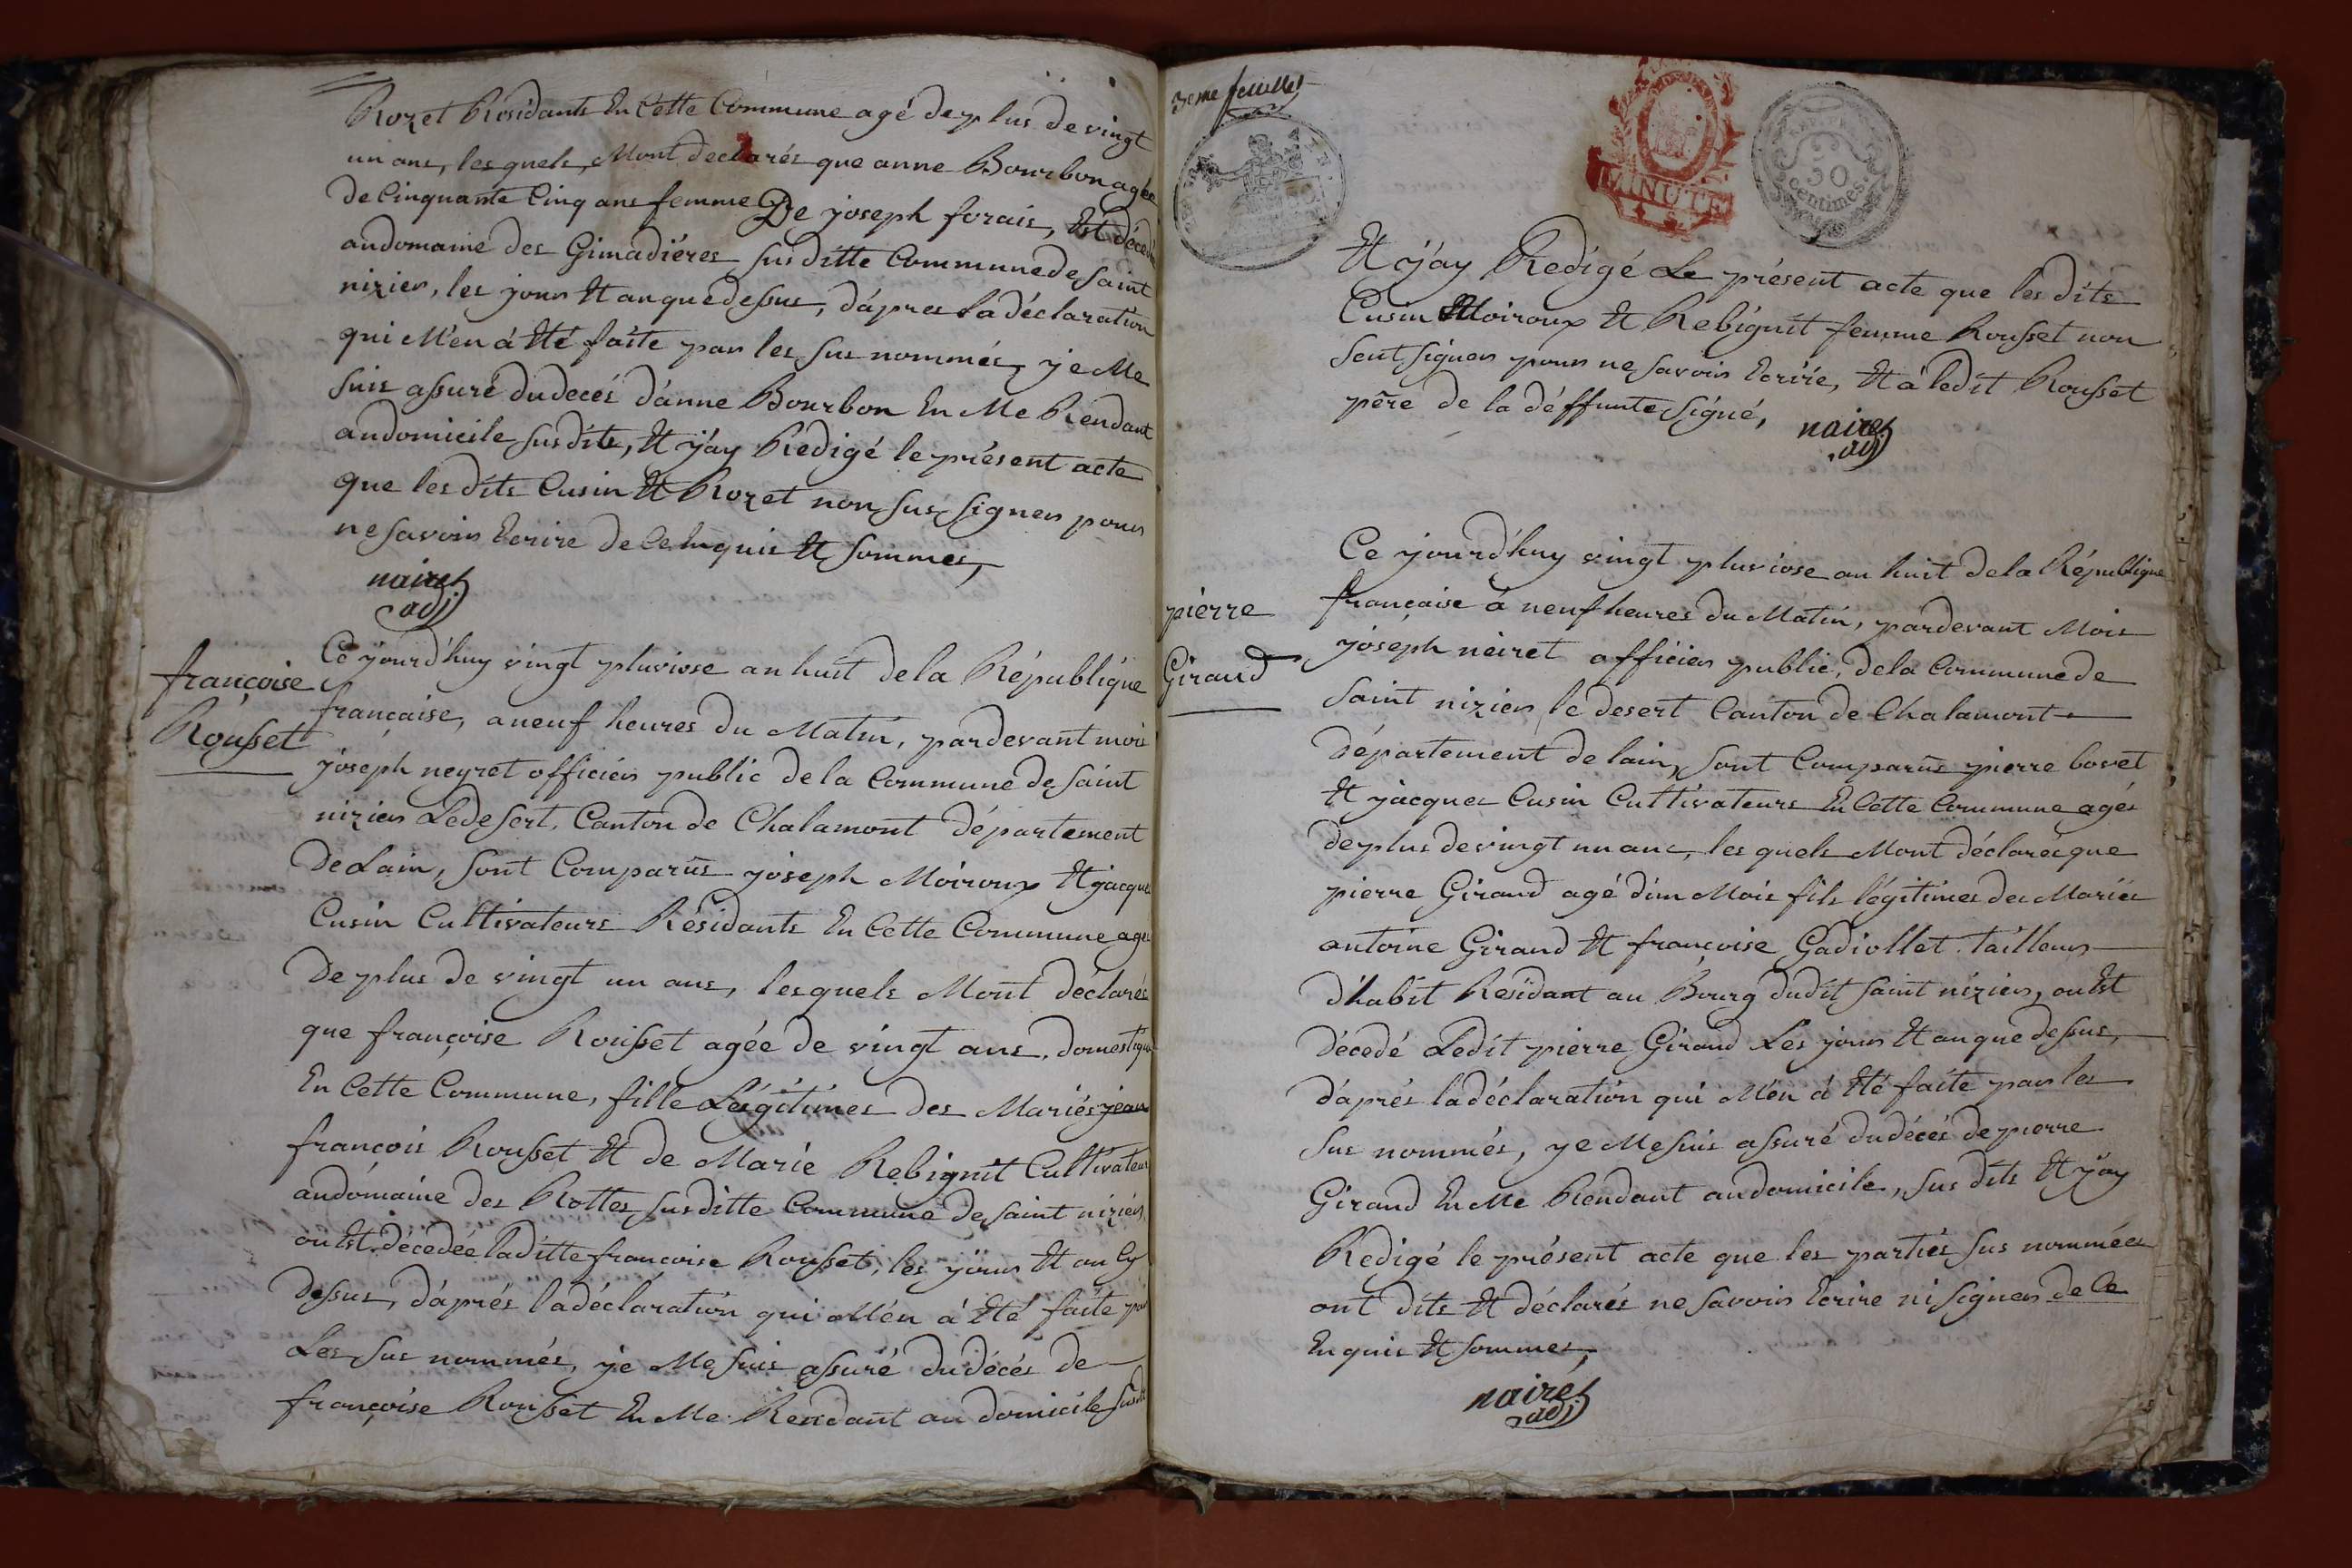 Rozet Résidants En Cette Commune agé de plus de vingt
un ans, les quels, Mont declarés que anne Bourbon agée
de Cinquante Cinq ans femme De joseph forais, Est décedé
au domaine des Gimadiéres sus ditte Commune de Saint
nizier, les jour Et an que dessus, d'apres la déclaration
qui M'en á Eté faite par les sus nommés, je Me
suis assuré du decés d'anne Bourbon En Me Rendant
au domicile sus dits, Et j'ay Redigé le présent acte
que les dits Cusin Et Rozet non sus signer pour
ne savoir Ecrire de Ce Enquis Et sommes,
naire
adj
françoise
Rousset
Ce jourd'huy vingt pluviose an huit de la République
française, a neuf heures du Matin, pardevant moi
joseph neyret officier public de la Commune de Saint
nizier Le desert, Canton de Chalamont Département
De Lain, sont Comparûs joseph Moiroux Et jacques
Cusin Cultivateurs Résidants En Cette Commune agés
De plus de vingt un ans, lesquels Mont déclarés
que françoise Rousset agée de vingt ans, domestique
En Cette Commune, fille Légitimes des Mariés jean
françois Rousset Et de Marie Rebignit Cultivateur
au domaine des Rottes sus ditte Commune de saint nizier,
ou Est décedée laditte francoise Rousset, les jour Et an Cy
Dessus, d'aprés la déclaration qui M'en á Eté faite par
Les sus nommés, je Me suis assuré du décés de
françoise Rousset En Me Rendant au domicile susdit
3eme feuillet
MINUTE
50
centimes.
Et j'ay Redigé Le présent acte que les dits
Cusin Moiroux Et Rebignit femme Rousset non
sent signer pour ne savoir Ecrire, Et a ledit Rousset
pére de la déffunte signé,
naire
adj
pierre
Giraud
Ce jourd'huy vingt pluviose an huit de la République
française á neuf heures du Matin, pardevant Moi
joseph neiret officier public, de la Commune de
Saint nizier le desert Canton de Chalamont
Département de lain, sont Comparûs pierre bovet
Et jacques Cusin Cultivateurs En Cette Commune agés
de plus de vingt un ans, les quels Mont déclarés que
pierre Giraud agé d'un Mois fils légitimes des Mariés
antoine Giraud Et françoise Gadiollet tailleur
d'habit Résidant au Bourg dudit saint nizier, ou Est
décedé Ledit pierre Giraud Les jour Et an que dessus,
d'aprés la déclaration qui M'en á Eté faite par les
sus nommés, je Me suis assuré du décés de pierre
Giraud En Me Rendant au domicile, sus dits Et j'ay
Rédigé le présent acte que les parties sus nommées
ont dits Et déclarés ne savoir Ecrire ni signer de Ce
Enquis Et sommes,
naire
adj